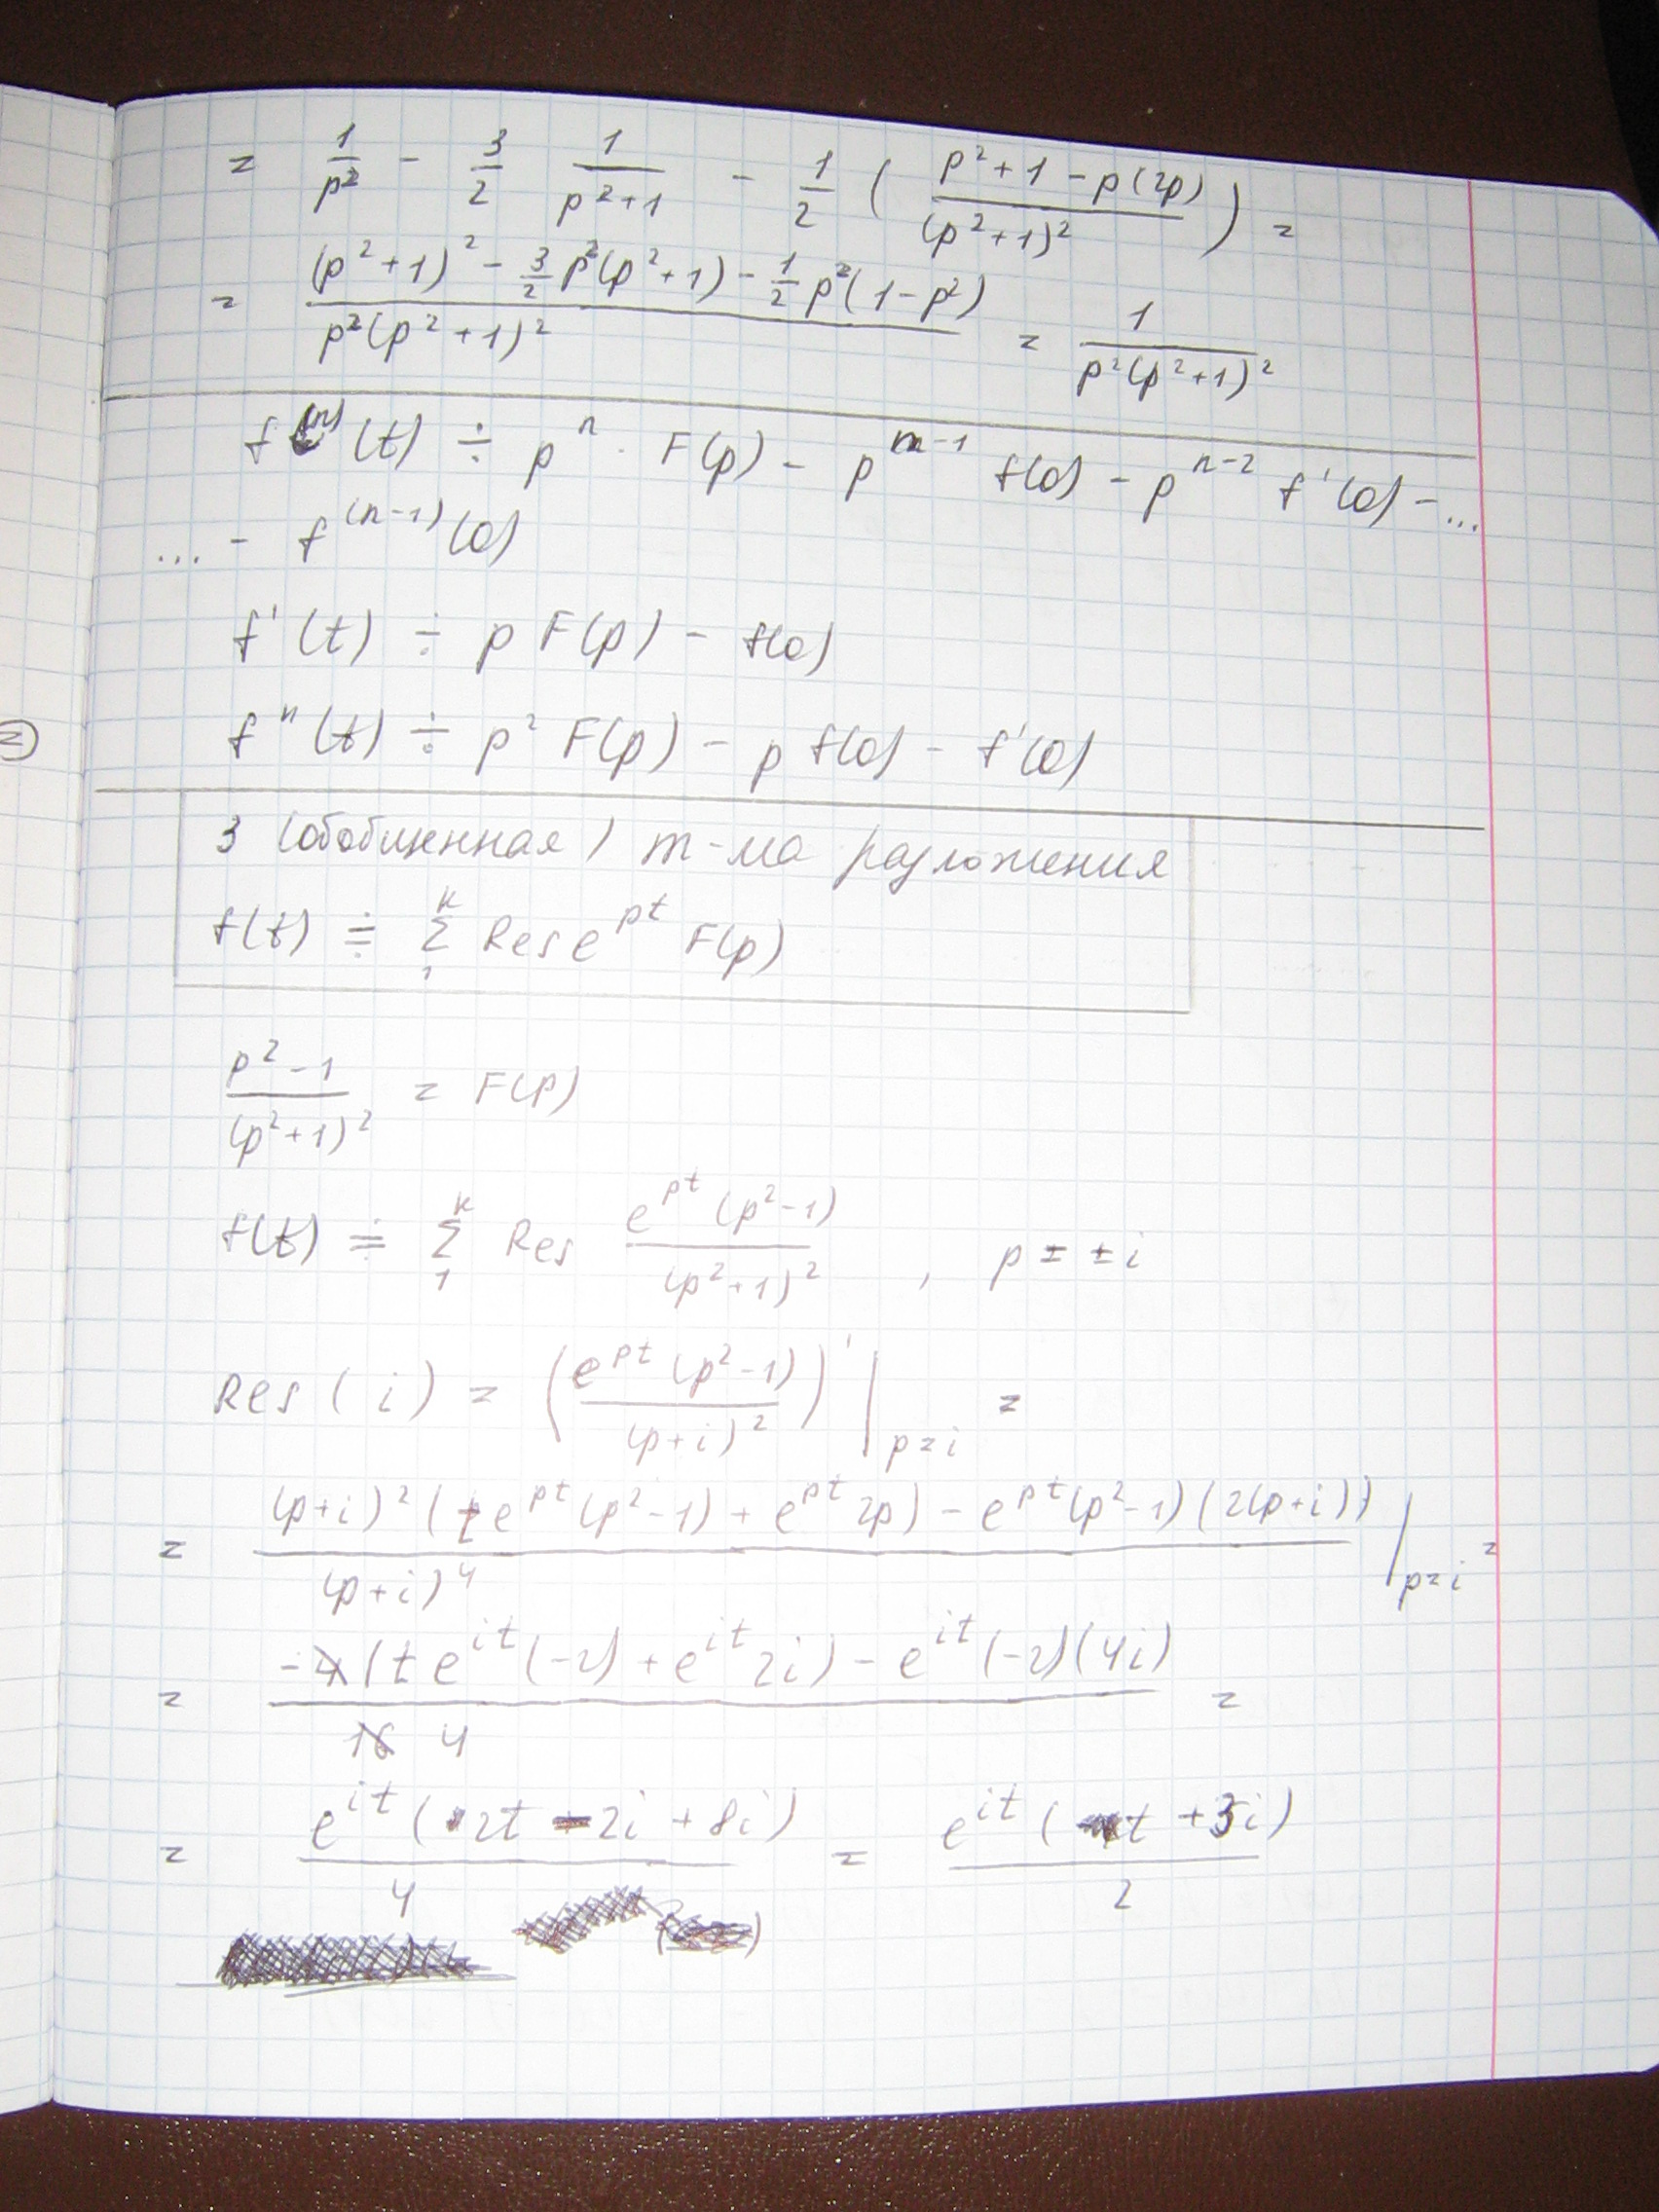 = 1/p² - 3/2 1/(p²+1) - 1/2 ( (p²+1-p(2p))/(p²+1)² ) =
= ((p²+1)² - 3/2 p²(p²+1) - 1/2 p²(1-p²))/(p²(p²+1)²) = 1/(p²(p²+1)²)
f⁽ⁿ⁾(t) ÷ pⁿ · F(p) - pⁿ⁻¹ f(0) - pⁿ⁻² f'(0) - ...
... - f⁽ⁿ⁻¹⁾(0)
f'(t) ÷ p F(p) - f(0)
f"(t) ÷ p² F(p) - p f(0) - f'(0)
3 (обобщенная) т-ма разложения
f(t) ≑ Σ₁ᵏ Res e^{pt} F(p)
(p²-1)/(p²+1)² = F(p)
f(t) ≑ Σ₁ᵏ Res (e^{pt}(p²-1))/(p²+1)² , p = ±i
Res(i) = ( (e^{pt}(p²-1))/(p+i)² )' |_{p=i} =
= ((p+i)²(te^{pt}(p²-1) + e^{pt}2p) - e^{pt}(p²-1)(2(p+i)))/(p+i)⁴ |_{p=i} =
= (-4(te^{it}(-2) + e^{it}2i) - e^{it}(-2)(4i))/(16 4) =
= (e^{it}(2t - 2i + 8i))/4 = (e^{it}(t + 3i))/2